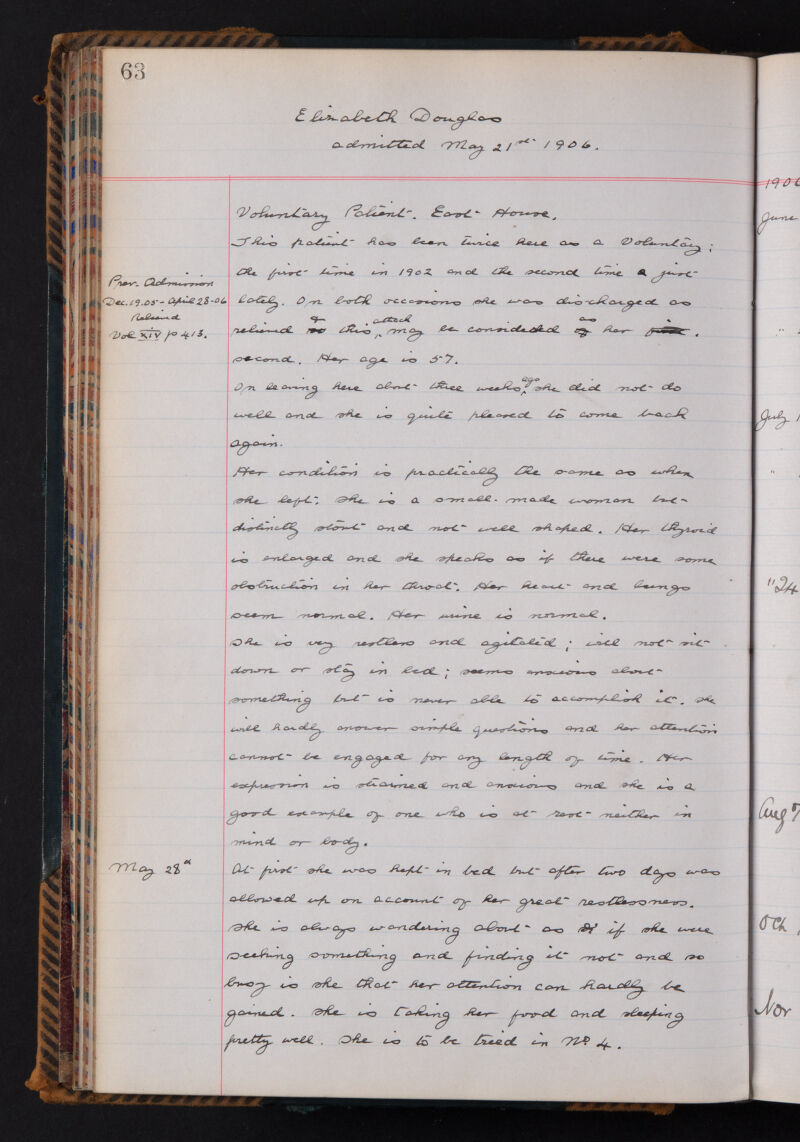 63
Elizabeth Douglas
admitted May 21st 1906.
Voluntary Patient. East House.
This patient has been twice here as a Voluntary;
the first time in 1902 and the second time a just
Prev. Admission
Dec. 19.05 - April 28-06
Relieved
Vol XIV p 413.
lately. On both occasions she was discharged as
relieved & this attack may be considered as her
second. Her age is 57.
On leaving here about three weeks ago she did not do
well and she is quite pleased to come back
again.
Her condition is practically the same as when
she left; she is a small-made woman but
distinctly stout and not well shaped. Her thyroid
is enlarged and she speaks as if there were some
obstruction in her throat. Her heart and lungs
seem normal. Her urine is normal.
She is very restless and agitated; will not sit
down or stay in bed; seems anxious about
something but is never able to accomplish it. She
will hardly answer simple questions and her attention
cannot be engaged for any length of time. Her
expression is strained and anxious and she is a
good example of one who is at rest neither in
mind or body.
May 28th
At first she was kept in bed but after two days was
allowed up on account of her great restlessness.
She is always wandering about as if she were
seeking something and finding it not and so
busy is she that her attention can hardly be
gained. She is taking her food and sleeping
pretty well. She is to be tried in No 4.
1906
June
July 1
" 24
Aug
Oct
Nov